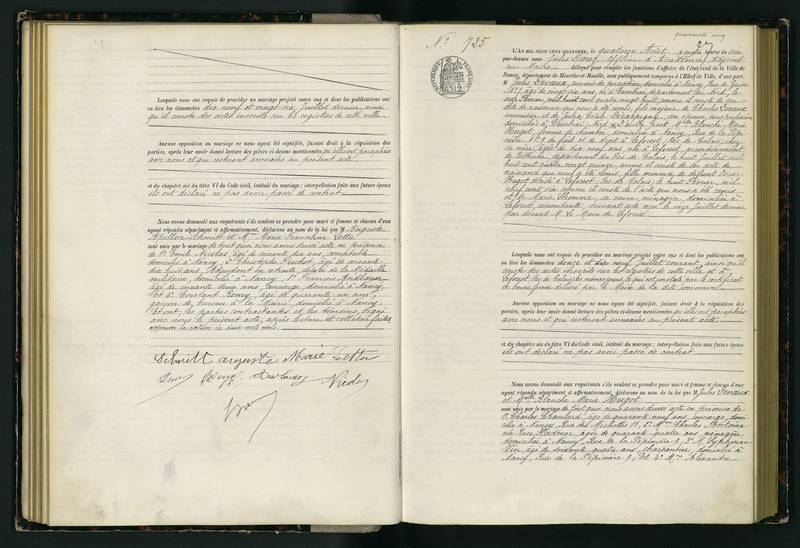 Lesquels nous ont requis de procéder au mariage projeté entre eux et dont les publications ont
eu lieu les dimanches dix neuf et vingt six Juillet dernier, ainsi
qu'il conste des actes inscrits sur les registres de cette ville
Aucune opposition au mariage ne nous ayant été signifiée, faisant droit à la réquisition des
parties, après leur avoir donné lecture des pièces ci-dessus mentionnées qu'elles ont paraphées
avec nous et qui resteront annexées au présent acte
et du chapitre six du titre VI du Code civil, intitulé du mariage ; interpellation faite aux futurs époux
ils ont déclaré ne pas avoir passé de contrat
Nous avons demandé aux requérants s'ils veulent se prendre pour mari et femme et chacun d'eux
ayant répondu séparément et affirmativement, déclarons au nom de la loi que M Auguste
Schmitt et Melle Marie
sont unis par le mariage de tout quoi nous avons dressé acte en présence
de 1° Emile Nicolas, âgé de soixante dix ans, comptable
domicilié à Nancy, 2° Christophe âgé de soixante
dix huit ans, Adjudant en retraite, décoré de la Médaille
militaire, domicilié à Nancy, 3° François
âgé de soixante deux ans, Concierge, domicilié à Nancy
Et 4° Constant Remy, âgé de quarante un ans,
garçon de bureau à la Mairie, domicilié à Nancy.
Et ont, les parties contractantes et les témoins, signé
avec nous le présent acte, après lecture et collation faites
Schmitt Auguste Marie
Remy Nicolas
N° 725
quarante cinq
REPUBLIQUE FRANÇAISE
L'AN MIL NEUF CENT QUATORZE, le quatorze Août à onze heures du
par-devant nous Jules Officier d'Académie, Adjoint
au Maire délégué pour remplir les fonctions d'officier de l'état civil de la Ville de
Nancy, département de Meurthe-et-Moselle, sont publiquement comparus à l'Hôtel de Ville, d'une part,
M Jules Devaux, commis de perception, domicilié à Nancy, Rue de
N° 7, âgé de vingt six ans, né à Cambrai, département du Nord, le
Février, mil huit cent quatre vingt huit, comme il conste de son
acte de naissance qui nous a été remis, fils majeur de Charles Devaux
menuisier et de Julia son épouse, sans profession
domiciliés à Cambrai, Nord D'autre part Melle Blanche Marie
Hugot, femme de chambre, domiciliée à Nancy, Rue de la Pépi-
nière N° 9 de fait et de droit à Leforest, Pas de Calais, chez
sa mère, âgée de dix neuf ans, née à Leforest, arrondissement
de Béthune, département du Pas de Calais, le huit Juillet mil
huit cent quatre vingt quinze, comme il conste de son acte de
naissance qui nous a été remis, fille mineure de défunt Oscar
Hugot décédé à Leforest, Pas de Calais, le huit Février, mil
neuf cent six comme il conste de l'acte qui nous a été remis
et de Marie sa veuve, ménagère, domiciliée à
Leforest, consentante, suivant acte reçu le onze Juillet dernier
par devant M. Le Maire de Leforest
Lesquels nous ont requis de procéder au mariage projeté entre eux et dont les publications ont
eu lieu les dimanches douze et dix neuf Juillet courant, ainsi qu'il
conste des actes inscrits sur les registres de cette ville et à
Leforest, les délais étant expirés, ce qui est constaté par le certificat
délivré par le Maire de la dite commune
Aucune opposition au mariage ne nous ayant été signifiée, faisant droit à la réquisition des
parties, après leur avoir donné lecture des pièces ci-dessus mentionnées qu'elles ont paraphées
avec nous et qui resteront annexées au présent acte
et du chapitre six du titre VI du Code civil, intitulé du mariage ; interpellation faite aux futurs époux
ils ont déclaré ne pas avoir passé de contrat
Nous avons demandé aux requérants s'ils veulent se prendre pour mari et femme et chacun d'eux
ayant répondu séparément et affirmativement, déclarons au nom de la loi que M Jules Devaux
et Melle Blanche Marie Hugot
sont unis par le mariage de tout quoi nous avons dressé acte en présence de
1° Charles Chaulard, âgé de quarante neuf ans, concierge, domi-
cilié à Nancy, Rue des Michottes 11, 2° Mme Charles
née Rose âgée de quarante quatre ans ménagère
domiciliée à Nancy, Rue de la Pépinière 9, 3° M. Symphorien
âgé de soixante quatre ans, charpentier, domicilié à
Nancy, Rue de la Pépinière 9, Et 4° Mme Alexandre